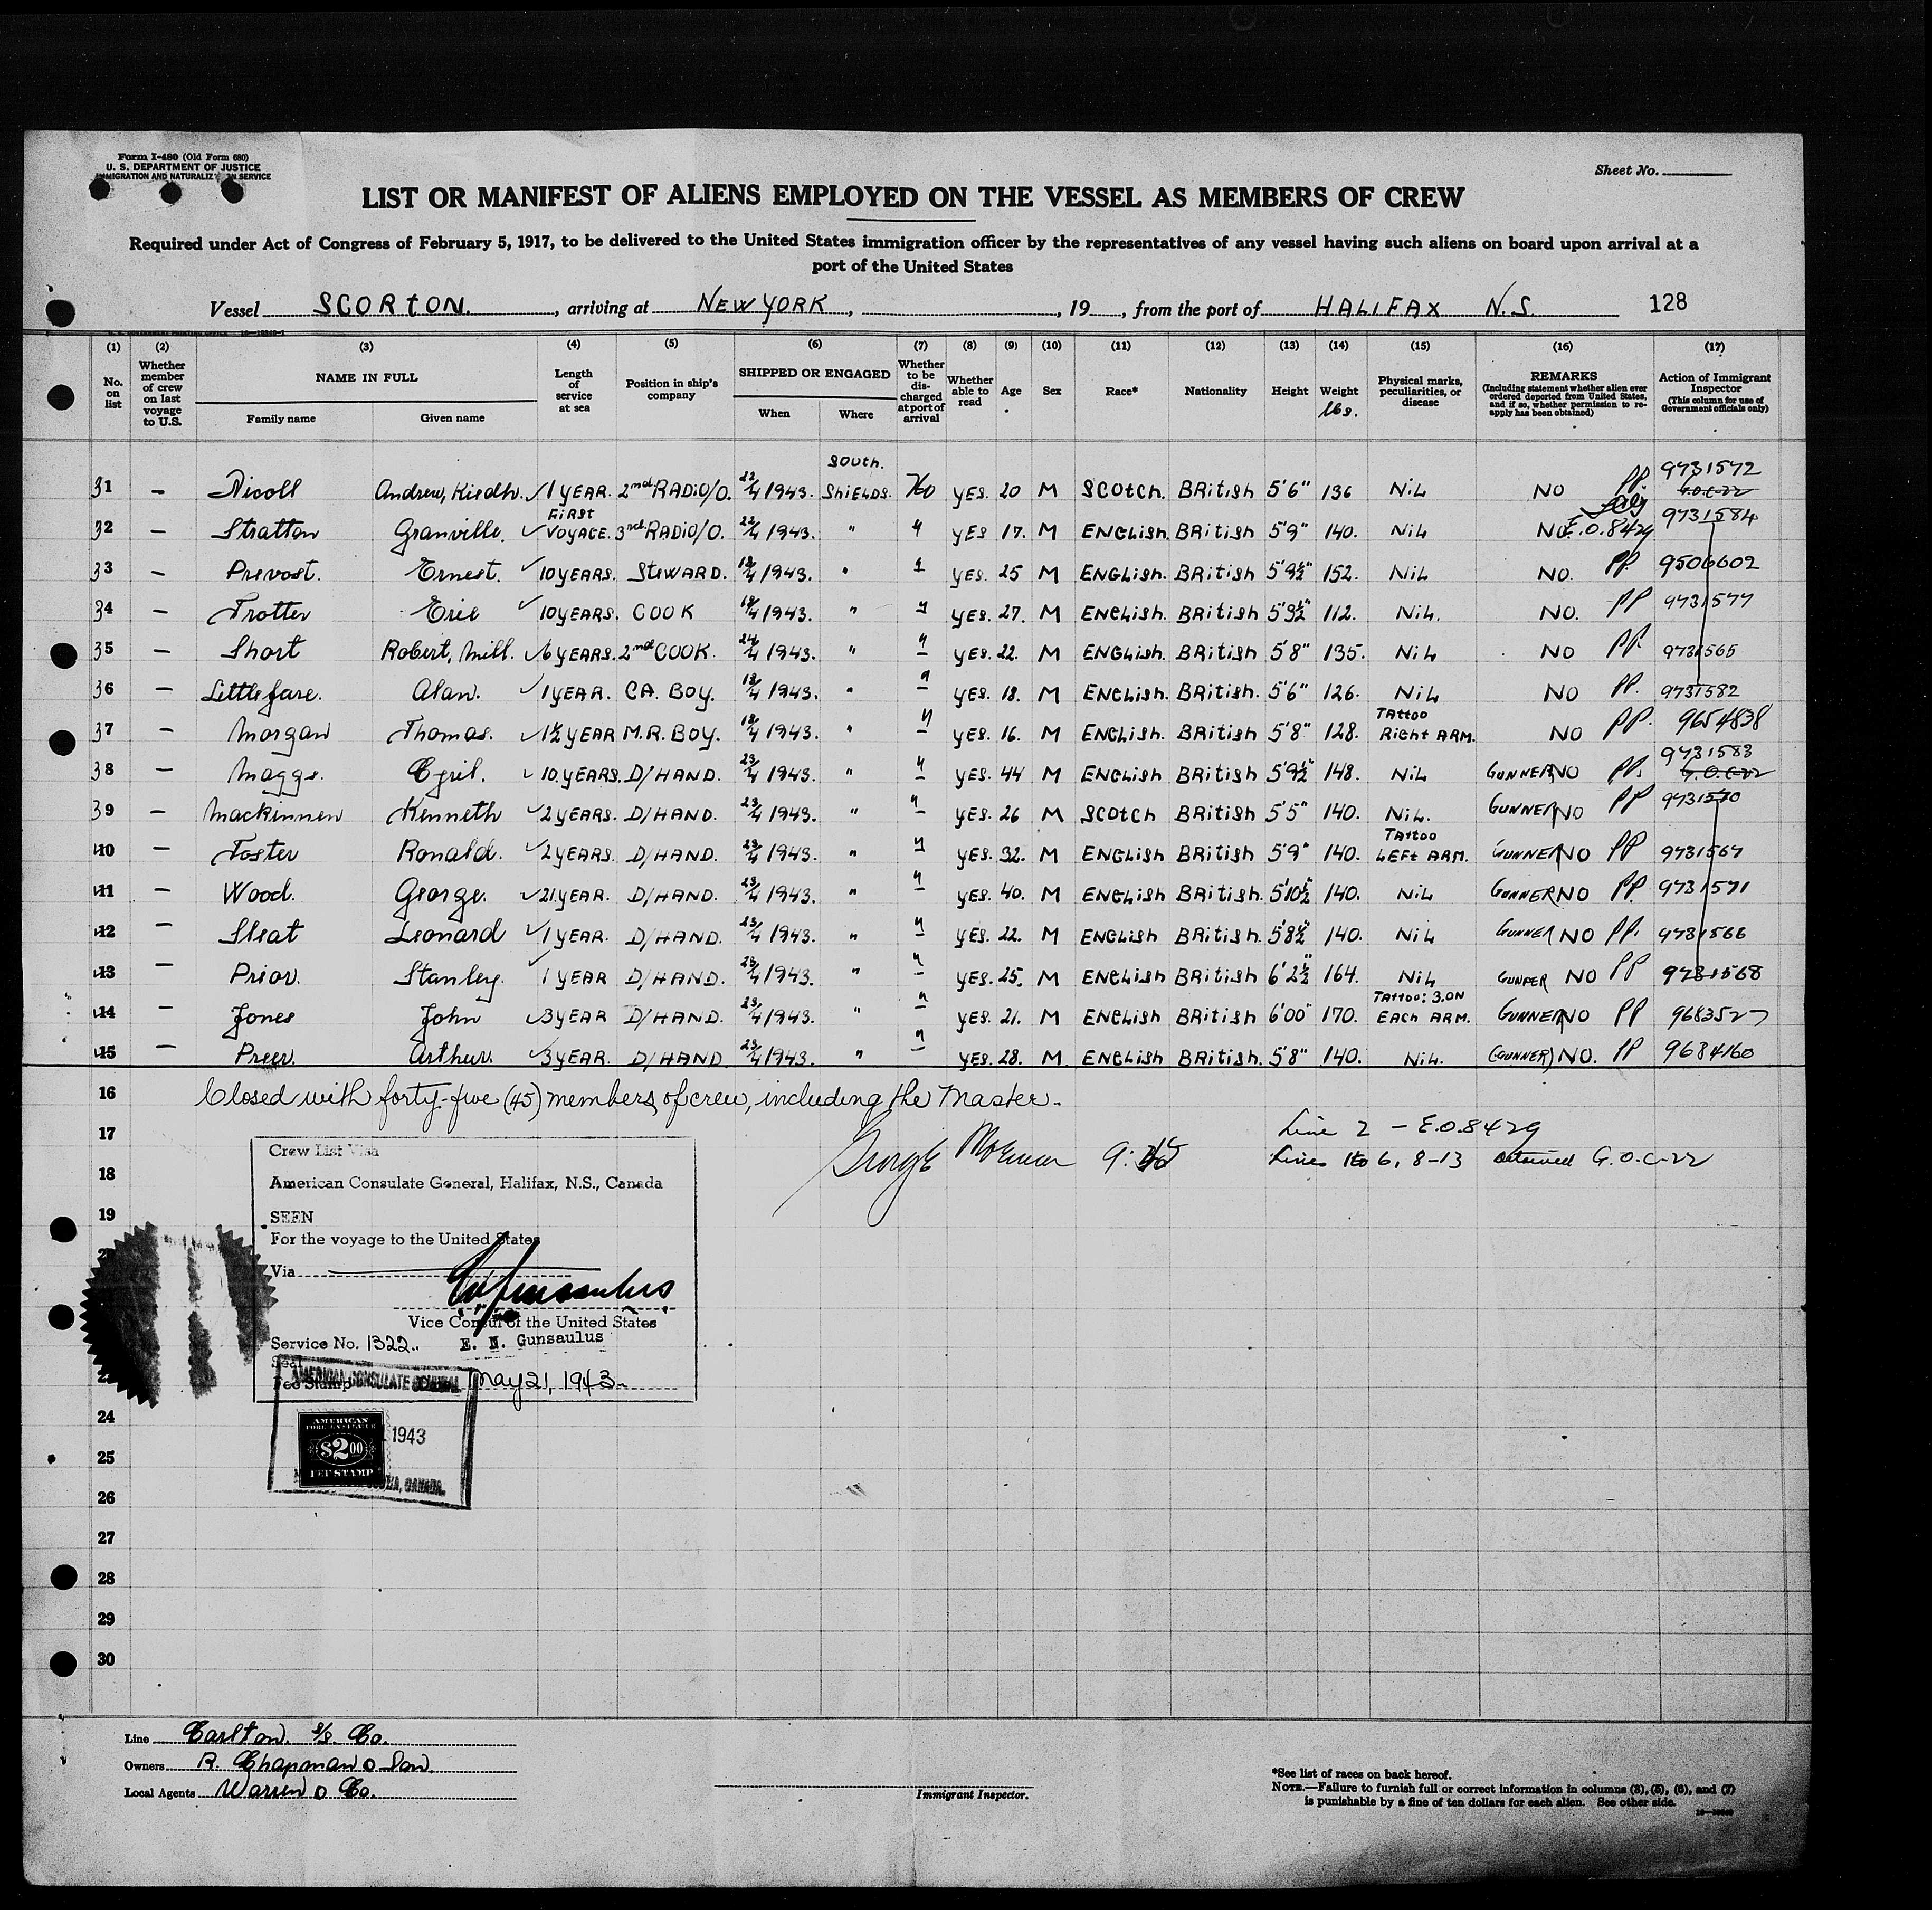 Form I-480 (Old Form 680)
U. S. DEPARTMENT OF JUSTICE
IMMIGRATION AND NATURALIZ SERVICE
Sheet No.
LIST OR MANIFEST OF ALIENS EMPLOYED ON THE VESSEL AS MEMBERS OF CREW
Required under Act of Congress of February 5, 1917, to be delivered to the United States immigration officer by the representatives of any vessel having such aliens on board upon arrival at a
port of the United States
Vessel SCORTON. , arriving at NEW YORK , , 19 , from the port of HALIFAX N.S. 128
(1) (2) (3) (4) (5) (6) (7) (8) (9) (10) (11) (12) (13) (14) (15) (16) (17)
No. on list
Whether member of crew on last voyage to U.S.
NAME IN FULL
Family name Given name
Length of service at sea
Position in ship's company
SHIPPED OR ENGAGED
When Where
Whether to be discharged at port of arrival
Whether able to read
Age
Sex
Race*
Nationality
Height
Weight lbs.
Physical marks, peculiarities, or disease
REMARKS
(Including statement whether alien ever ordered deported from United States, and if so, whether permission to reapply has been obtained)
Action of Immigrant Inspector
(This column for use of Government officials only)
31 — Nicoll Andrew, Kiedh. ✓ 1 YEAR. 2nd RADIO/O. 22/4 1943. SOUTH. SHIELDS. No YES. 20 M SCOTCH. BRITISH 5'6" 136 NIL NO PP. 9731572
32 — Stratton Granville. ✓ FIRST VOYAGE. 3rd RADIO/O. 22/4 1943. " " YES 17. M ENGLISH. BRITISH 5'9" 140. NIL NO E.O.8429 9731584
33 — Prevost. Ernest. ✓ 10 YEARS. STEWARD. 18/4 1943. " " YES. 25 M ENGLISH. BRITISH 5'9½" 152. NIL NO. PP. 9506602
34 — Trotter Eric ✓ 10 YEARS. COOK 18/4 1943. " " YES. 27. M ENGLISH. BRITISH 5'3½" 112. NIL. NO. PP 9731577
35 — Short Robert, Mill. ✓ 6 YEARS. 2nd COOK. 24/4 1943. " " YES. 22. M ENGLISH. BRITISH 5'8" 135. NIL NO PP. 9731565
36 — Littlefare. Alan. ✓ 1 YEAR. CA. BOY. 18/4 1943. " " YES. 18. M ENGLISH. BRITISH. 5'6" 126. NIL NO PP. 9731582
37 — Morgan Thomas. ✓ 1½ YEAR M.R. BOY. 18/4 1943. " " YES. 16. M ENGLISH. BRITISH 5'8" 128. TATTOO RIGHT ARM. NO PP. 9654838
38 — Maggs. Cyril. ✓ 10. YEARS. D/HAND. 23/4 1943. " " YES. 44 M ENGLISH BRITISH 5'9½" 148. NIL GUNNER NO PP. 9731583
39 — Mackinnen Kenneth ✓ 2 YEARS. D/HAND. 23/4 1943. " " YES. 26 M SCOTCH BRITISH 5'5" 140. NIL. GUNNER NO PP 9731570
40 — Foster Ronald. ✓ 2 YEARS. D/HAND. 23/4 1943. " " YES. 32. M ENGLISH BRITISH 5'9" 140. TATTOO LEFT ARM. GUNNER NO PP 9731567
41 — Wood. George. ✓ 21. YEAR. D/HAND. 23/4 1943. " " YES. 40. M ENGLISH BRITISH. 5'10½" 140. NIL GUNNER NO PP. 9731571
42 — Sleat Leonard ✓ 1 YEAR. D/HAND. 23/4 1943. " " YES. 22. M ENGLISH BRITISH. 5'8½" 140. NIL GUNNER NO PP. 9731566
43 — Prior. Stanley. ✓ 1 YEAR D/HAND. 23/4 1943. " " YES. 25. M ENGLISH BRITISH 6'2½" 164. NIL GUNNER NO PP 9731568
44 — Jones John ✓ 3 YEAR D/HAND. 23/4 1943. " " YES. 21. M ENGLISH BRITISH 6'00" 170. TATTOO: 3. ON EACH ARM. GUNNER NO PP 9683527
45 — Preer. Arthur. ✓ 3 YEAR. D/HAND 23/4 1943. " " YES. 28. M. ENGLISH BRITISH. 5'8" 140. NIL. (GUNNER) NO. PP 9684160
16 Closed with forty-five (45) members of crew, including the Master.
17 Line 2 — E.O.8429
George 9:
Lines 1 to 6, 8-13 detained G.O.C-22
18
19
24
25
26
27
28
29
30
Crew List Visa
American Consulate General, Halifax, N.S., Canada
SEEN
For the voyage to the United States
Via
Vice Consul of the United States
Service No. 1322. E. N. Gunsaulus
Seal
Fee Stamp May 21, 1943
AMERICAN CONSULATE GENERAL
1943
AMERICAN
$2.00
FEE STAMP
CANADA.
Line Carlton. S/S Co.
Owners R. Chapman o Son.
Local Agents Warren o Co.
Immigrant Inspector.
*See list of races on back hereof.
NOTE.—Failure to furnish full or correct information in columns (3), (5), (6), and (7)
is punishable by a fine of ten dollars for each alien. See other side.